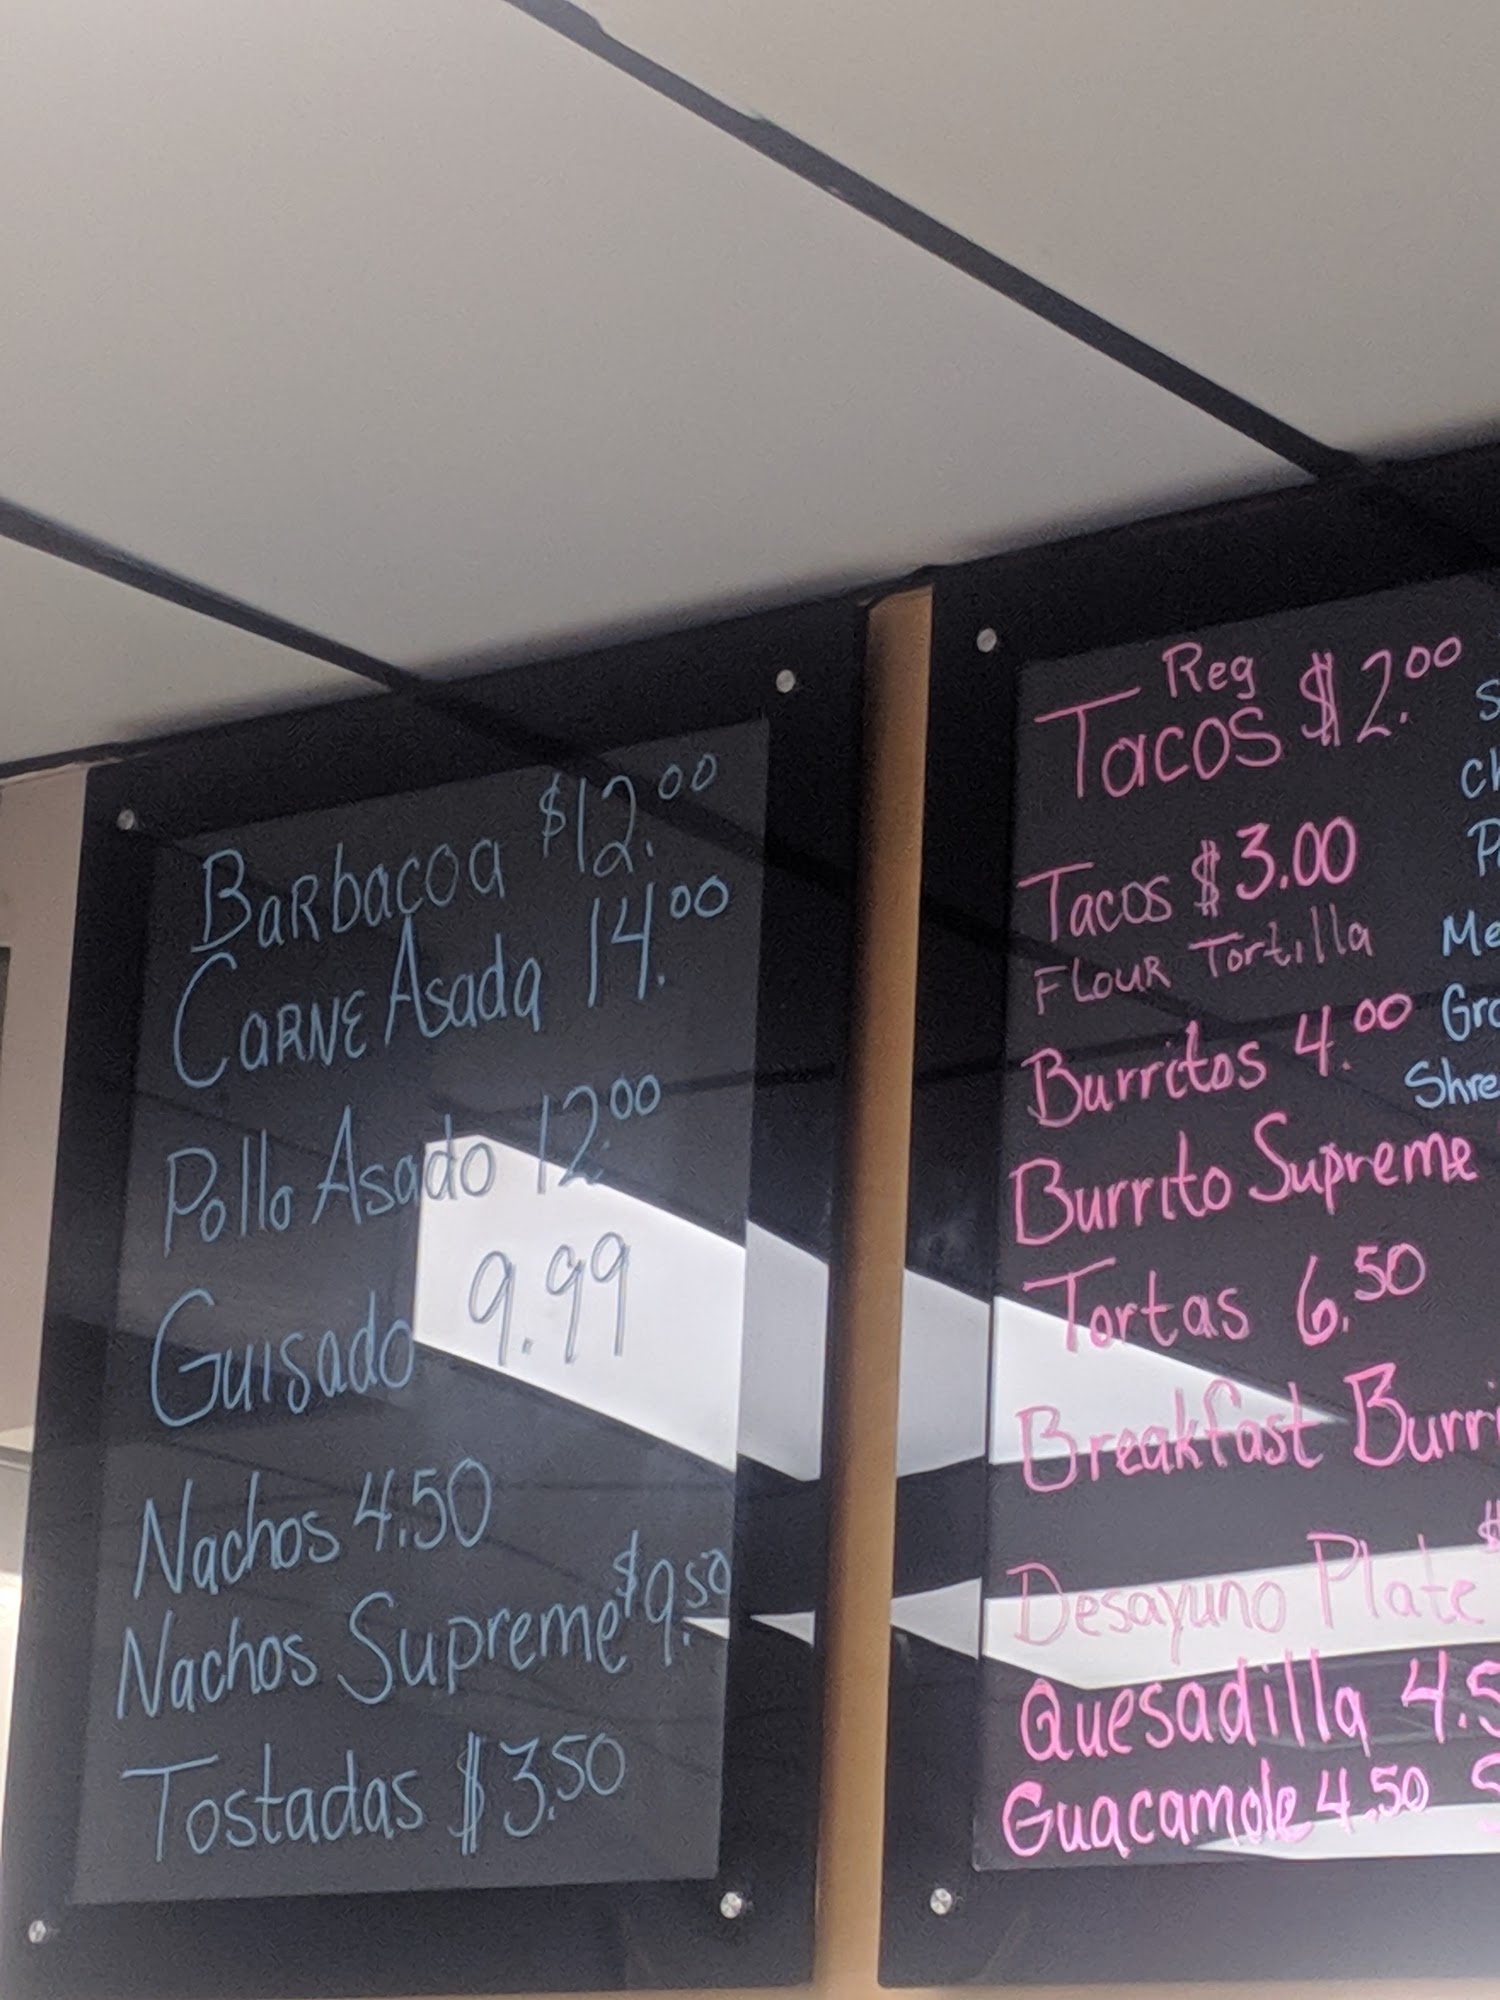 Barbacoa $12.00
Carne Asada 14.00
Pollo Asado 12.00
Guisado 9.99
Nachos 4.50
Nachos Supreme $9.50
Tostadas $3.50
Reg
Tacos $2.00
Tacos $3.00
Flour Tortilla
Burritos 4.00
Burrito Supreme
Tortas 6.50
Breakfast
Desayuno Plate
Quesadilla
Guacamole 4.50